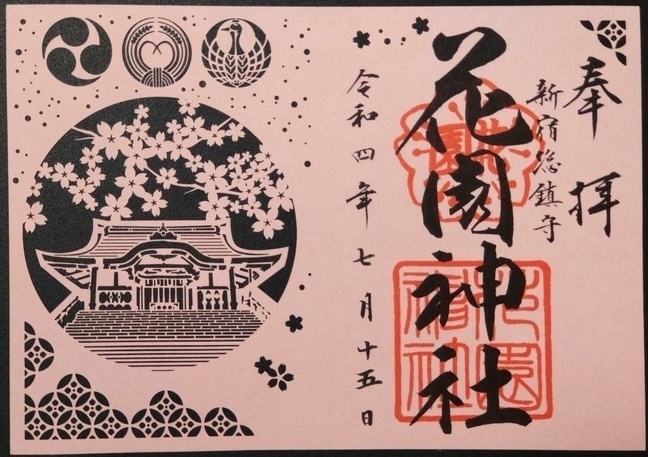 奉拝
新宿総鎮守
花園神社
令和四年七月十五日